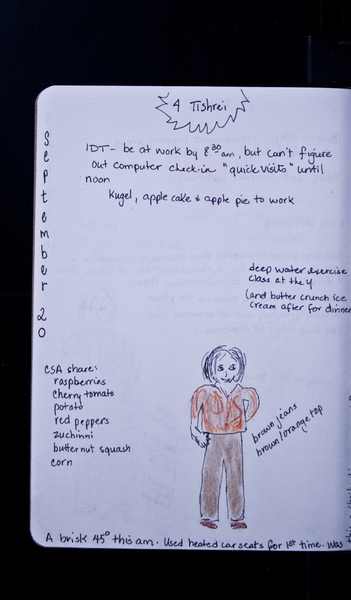 4 Tishrei
September 20
IDT - be at work by 8:30 am, but can't figure
out computer check-in "quick visits" until
noon
kugel, apple cake & apple pie to work
deep water exercise
class at the Y.
(and butter crunch ice
cream after for dinner
CSA share:
raspberries
cherry tomato
potato
red peppers
zuchinni
butternut squash
corn
brown jeans
brown/orange top
A brisk 45° this am. Used heated car seats for 1st time. Was